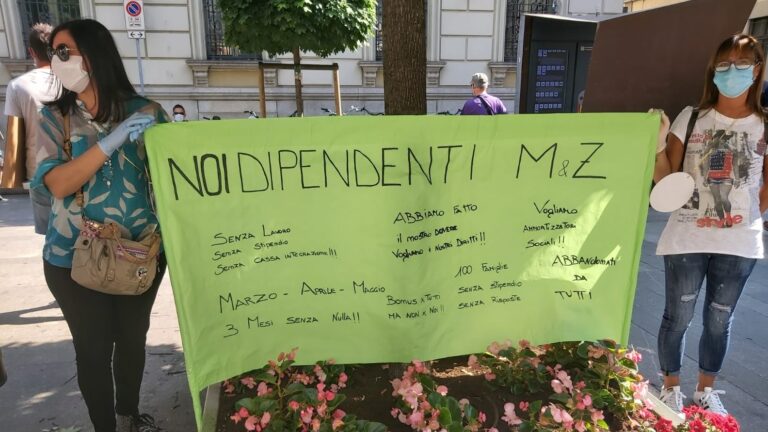 NOI DIPENDENTI M&Z
SENZA LAVORO
SENZA STIPENDIO
SENZA CASSA INTEGRAZIONE!!!
ABBIAMO FATTO
IL NOSTRO DOVERE
VOGLIAMO I NOSTRI DIRITTI!!
VOGLIAMO
AMMORTIZZATORI
SOCIALI!!
MARZO - APRILE - MAGGIO
3 MESI SENZA NULLA!!
BONUS X TUTTI
MA NON X NOI!!
100 FAMIGLIE
SENZA STIPENDIO
SENZA RISPOSTE
ABBANDONATI
DA
TUTTI